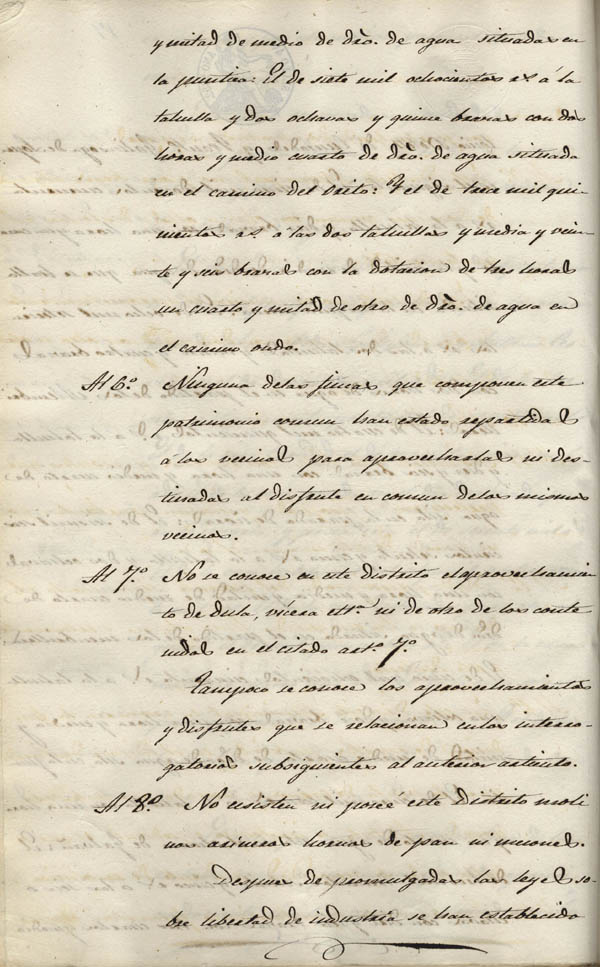 y mitad de medio de dro. de agua situadas en
la puntica: El de siete mil ochocientos rs. á la
tahulla y dos ochavas y quince brazas con dos
horas y medio cuarto de dro. de agua situada
en el camino del Brito: Y el de trece mil qui-
nientos rs. á las dos tahullas y media y vein-
te y seis brazas con la dotacion de tres horas
un cuarto y mitad de otro de dro. de agua en
el camino ondo.
Al 6.º Ninguna de las fincas que componen este
patrimonio comun han estado repartidas
á los vecinos para aprovecharlas ni des-
tinadas al disfrute en comun de los mismos
vecinos.
Al 7.º No se conoce en este distrito el aprovechamien-
to de dula, vicera etc.ª ni de otro de los conte-
nidos en el citado art.º 7.º
Tampoco se conoce los aprovechamientos
y disfrutes que se relacionan en los interro-
gatorios subsiguientes al anterior articulo.
Al 8.º No ecsisten ni posée este distrito moli-
nos arineros hornos de pan ni mesones.
Despues de promulgadas las leyes so-
bre libertad de industria se han establecido